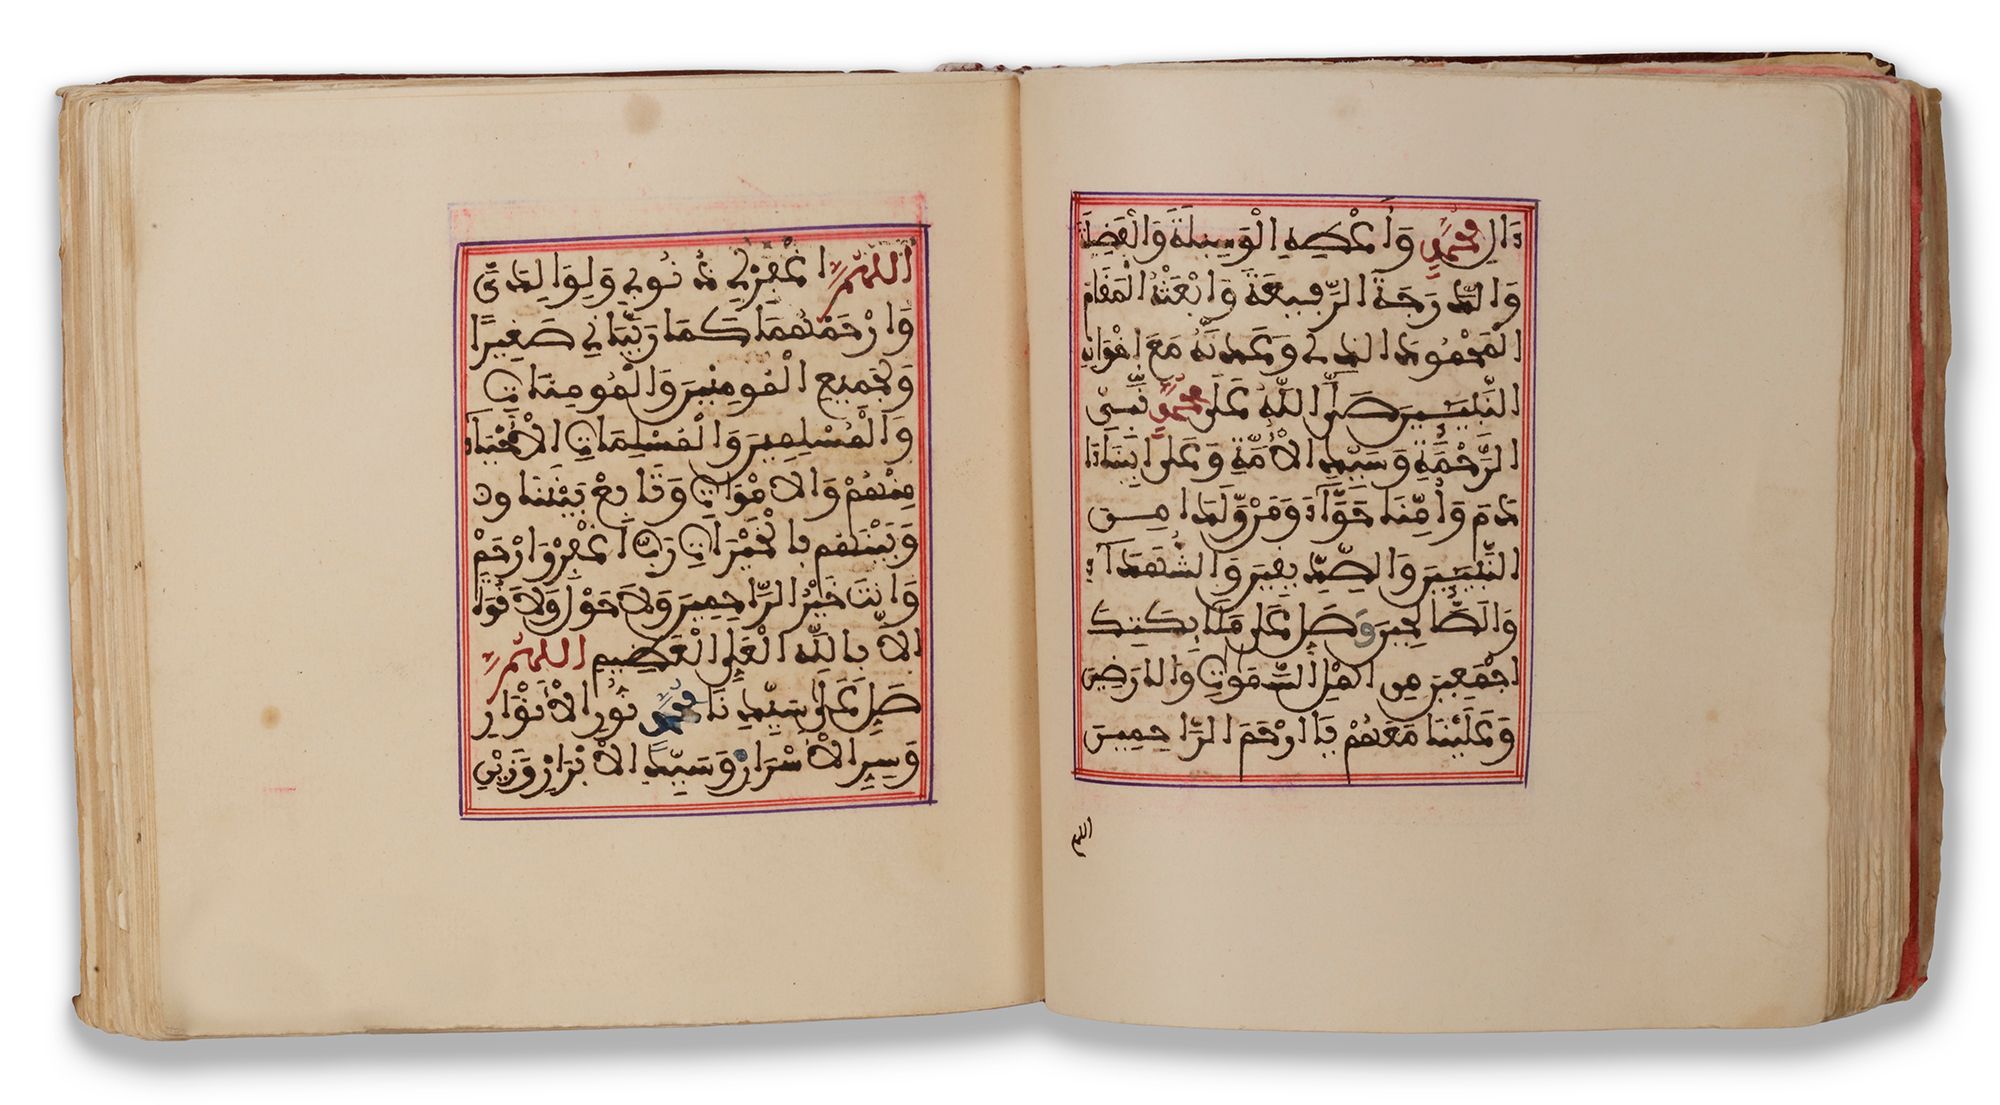 دَالِ مُحَمَّدٍ وَأَعْطِهِ الْوَسِيلَةَ وَالْفَضِيلَةَ
وَالدَّرَجَةَ الرَّفِيعَةَ وَابْعَثْهُ الْمَقَامَ
الْمَحْمُودَ الذِي وَعَدتَّهُ مَعَ إِخْوَانِهِ
النَّبِيئِينَ صَلَّى اللَّهُ عَلَى مُحَمَّدٍ نَّبِيِّ
الرَّحْمَةِ وَسَيِّدِ الْأُمَّةِ وَعَلَى أَبِينَا دَا
دَمَ وَأُمِّنَا حَوَّآءَ وَمَن وَّلَدَا مِنَ
النَّبِيئِينَ وَالصِّدِّيقِينَ وَالشُّهَدَآءِ
وَالصَّالِحِينَ وَصَلِّ عَلَى مَلَآئِكَتِكَ
أَجْمَعِينَ مِنْ أَهْلِ السَّمَوَاتِ وَالَارَضِينَ
وَعَلَيْنَا مَعَهُمْ يَا أَرْحَمَ الرَّاحِمِينَ
اللهم
اللَّهُمَّ اغْفِرْ لِي ذُنُوبِي وَلِوَالِدَيَّ
وَارْحَمْهُمَا كَمَا رَبَّيَانِي صَغِيرًا
وَلِجَمِيعِ الْمُومِنِينَ وَالْمُومِنَاتِ
وَالْمُسْلِمِينَ وَالْمُسْلِمَاتِ الْأَحْيَآءِ
مِنْهُمْ وَالَامْوَاتِ وَتَابِعْ بَيْنَنَا
وَبَيْنَهُم بِالْخَيْرَاتِ رَبِّ اغْفِرْ وَارْحَمْ
وَأَنتَ خَيْرُ الرَّاحِمِينَ وَلَا حَوْلَ وَلَا قُوَّةَ
إِلَّا بِاللَّهِ الْعَلِيِّ الْعَظِيمِ اللَّهُمَّ
صَلِّ عَلَى سَيِّدِنَا مُحَمَّدٍ نُورِ الْأَنْوَارِ
وَسِرِّ الْأَسْرَارِ وَسَيِّدِ الْأَبْرَارِ وَزَيْنِ